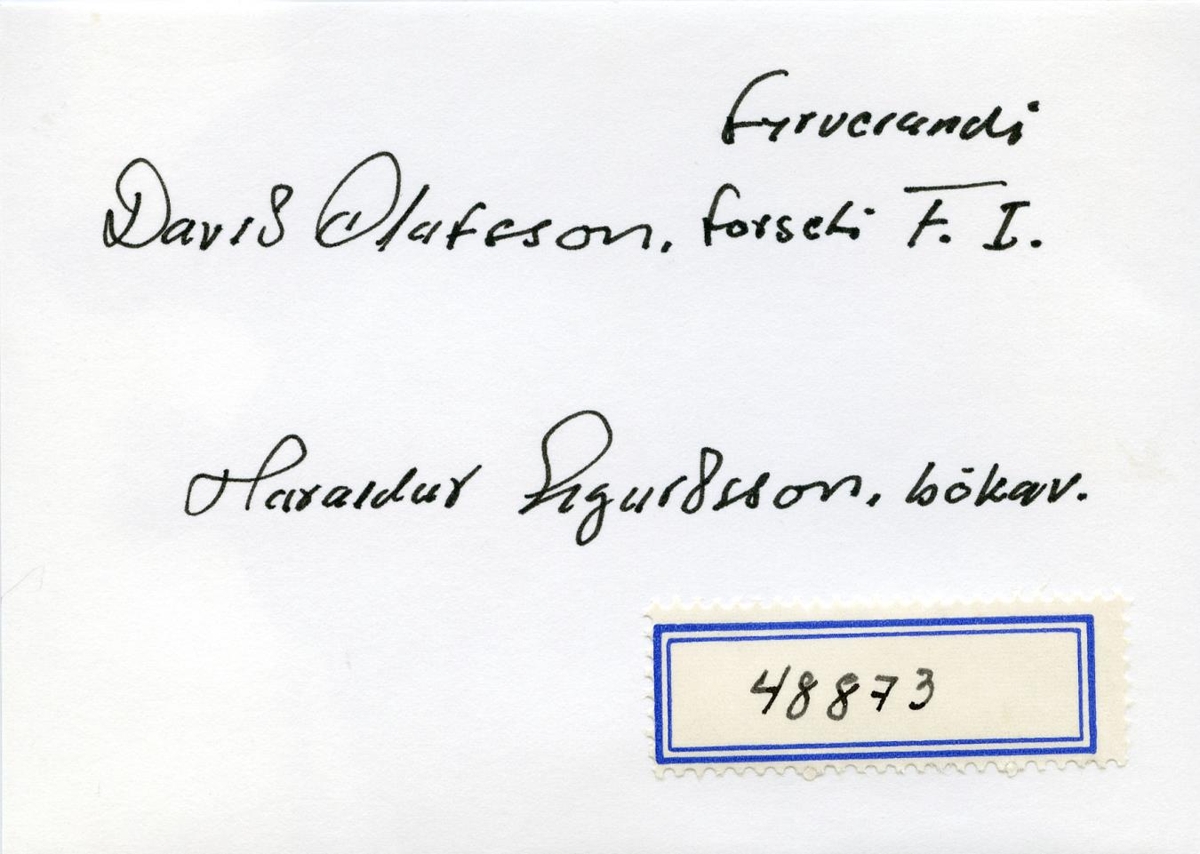 fyrverandi
Davið Olafsson, forseti F. I.
Haraldur Sigurðsson, bókav.
48873